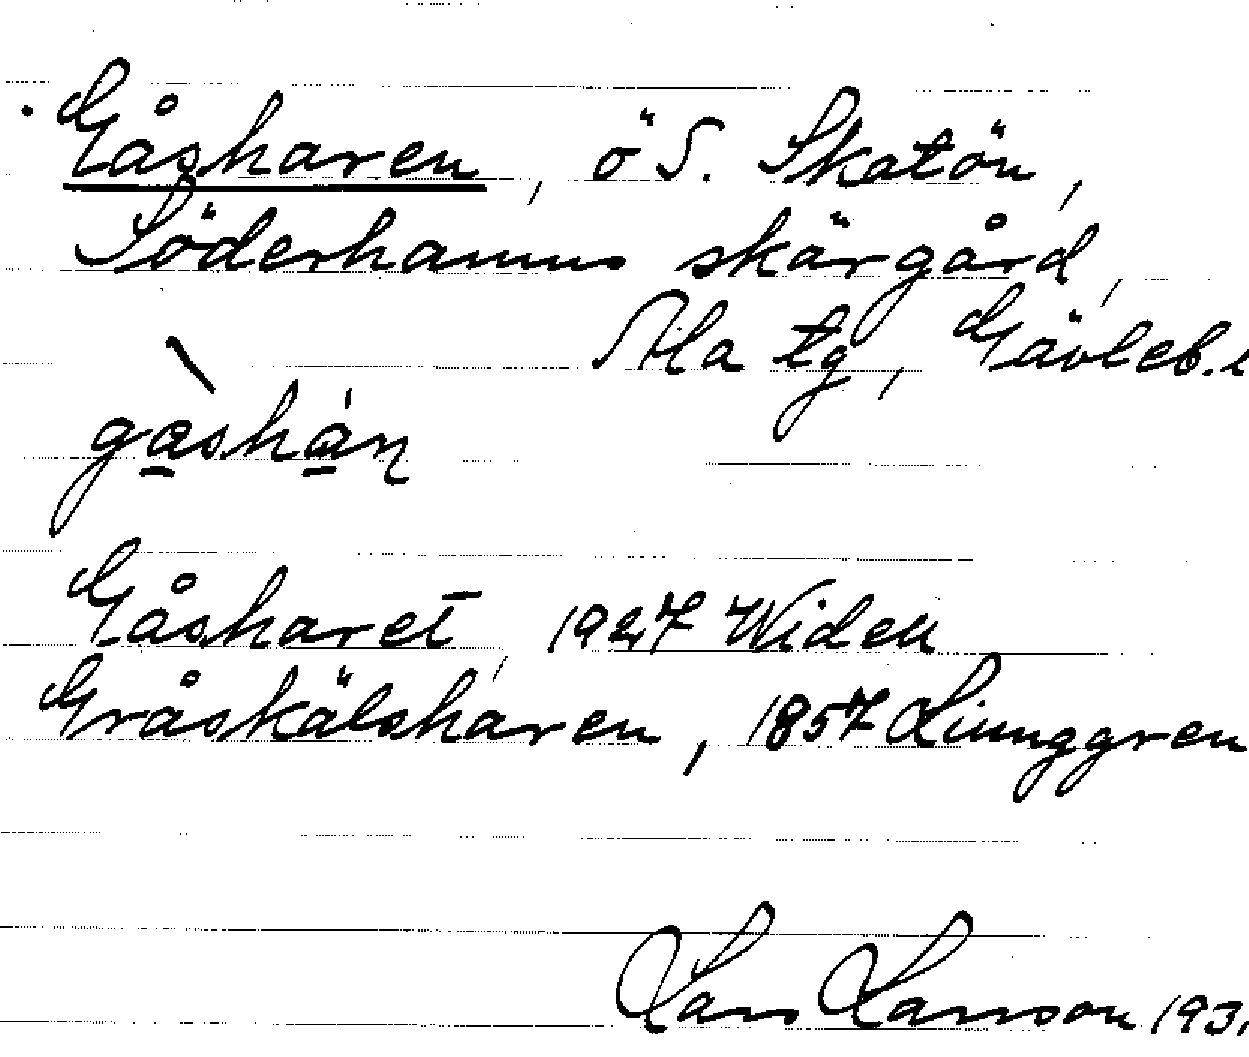 Gåsharen, ö S. Skatön,
Söderhamns skärgård,
Ala tg, Gävleb.
gåshán
Gåsharet, 1927 Widell
Gråskälsharen, 1857 Ljunggren
Lars Larsson 193